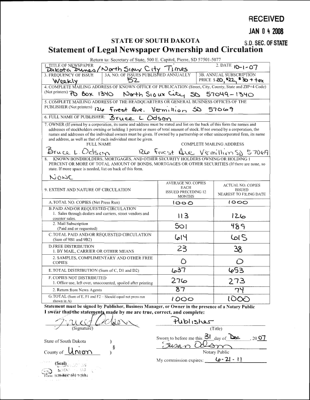 RECEIVED
JAN 04 2008
S.D. SEC. OF STATE
STATE OF SOUTH DAKOTA
Statement of Legal Newspaper Ownership and Circulation
Return to: Secretary of State, 500 E. Capitol, Pierre, SD 57501-5077
1. TITLE OF NEWSPAPER
Dakota Dunes/North Sioux City Times
2. DATE 10-1-07
3. FREQUENCY OF ISSUE
Weekly
3A. NO. OF ISSUES PUBLISHED ANNUALLY
52
3B. ANNUAL SUBSCRIPTION
PRICE
4. COMPLETE MAILING ADDRESS OF KNOWN OFFICE OF PUBLICATION (Street, City, County, State and ZIP+4 Code)
(Not printers) PO Box 1340 North Sioux City, SD 57049-1340
5. COMPLETE MAILING ADDRESS OF THE HEADQUARTERS OR GENERAL BUSINESS OFFICES OF THE
PUBLISHER (Not printers) 126 Forest Ave Vermillion SD 57069
6. FULL NAME OF PUBLISHER: Bruce L Odson
7. OWNER (If owned by a corporation, its name and address must be stated and also on the back of this form the names and
addresses of stockholders owning or holding 1 percent or more of total amount of stock. If not owned by a corporation, the
names and addresses of the individual owners must be given. If owned by a partnership or other unincorporated firm, its name
and address, as well as that of each individual must be given.
FULL NAME COMPLETE MAILING ADDRESS
Bruce L Odson 126 Forest Ave Vermillion SD 57069
8. KNOWN BONDHOLDERS, MORTGAGES, AND OTHER SECURITY HOLDERS OWNING OR HOLDING 1
PERCENT OR MORE OF TOTAL AMOUNT OF BONDS, MORTGAGES OR OTHER SECURITIES (If there are none, so
state. If more space is needed, list on back of this form.
None
9. EXTENT AND NATURE OF CIRCULATION
AVERAGE NO. COPIES
EACH
ISSUED PRECEDING 12
MONTHS
ACTUAL NO. COPIES
ISSUED
NEAREST TO FILING DATE
A. TOTAL NO. COPIES (Net Press Run) 1000 1000
B. PAID AND/OR REQUESTED CIRCULATION
1. Sales through dealers and carriers, street vendors and
counter sales. 113 126
2. Mail Subscription
(Paid and/or requested) 501 489
C. TOTAL PAID AND/OR REQUESTED CIRCULATION
(Sum of 9B1 and 9B2) 614 615
D. FREE DISTRIBUTION
1. BY MAIL, CARRIER OR OTHER MEANS 23 38
2. SAMPLES, COMPLIMENTARY AND OTHER FREE
COPIES 0 0
E. TOTAL DISTRIBUTION (Sum of C, D1 and D2) 637 653
F. COPIES NOT DISTRIBUTED
1. Office use, left over, unaccounted, spoiled after printing 276 273
2. Return from News Agents 87 74
G. TOTAL (Sum of E, F1 and F2 - Should equal net press run
shown in A) 1000 1000
Statement must be signed by Publisher, Business Manager, or Owner in the presence of a Notary Public
I swear that the statements made by me are true, correct, and complete:
Bruce L Odson
(Signature)
Publisher
(Title)
State of South Dakota )
County of Union )
Sworn to before me this 31 day of Dec 2007
Susan Odson
Notary Public
(Seal)
My commission expires: 6-21-11